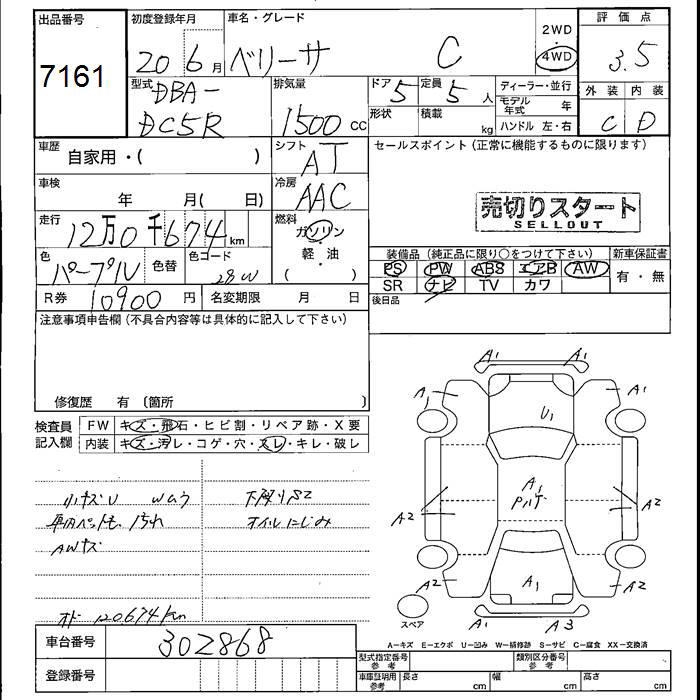 出品番号 初度登録年月 車名・グレード 2WD ・ 4WD 評価点
7161 20年 6月 ベリーサ C 3.5
型式 DBA- DC5R 排気量 1500cc ドア 5 定員 5人 ディーラー・並行 外装 内装
形状 積載 kg モデル年式 年 C D
ハンドル 左・右
車歴 自家用・( ) シフト AT セールスポイント (正常に機能するものに限ります)
車検 年 月( 日) 冷房 AAC 売切りスタート
SELLOUT
走行 12万0千674km 燃料 ガソリン・軽・油 ( )
色 パープル 色替 色コード 28W 装備品 (純正品に限り○をつけて下さい) 新車保証書
PS PW ABS エアB AW 有・無
R券 10900円 名変期限 月 日 SR ナビ TV カワ
注意事項申告欄 (不具合内容等は具体的に記入して下さい) 後日品
修復歴 有 〔箇所 〕
検査員記入欄 FW キズ・飛石・ヒビ割・リペア跡・X要
内装 キズ・汚レ・コゲ・穴・スレ・キレ・破レ
小キズU
車内ペット毛 汚れ オイルにじみ
AWキズ
120674km
A1 A1
A1 A1
U1
A1
Pハゲ
A2 A2
A2 A2
A1
A1 A3
スペア
車台番号 302868
A-キズ E-エクボ U-凹み W-補修跡 S-サビ C-腐食 XX-交換済
登録番号
型式指定番号 参考 類別区分番号 参考
車庫証明用 参考 長さ cm 幅 cm 高さ cm